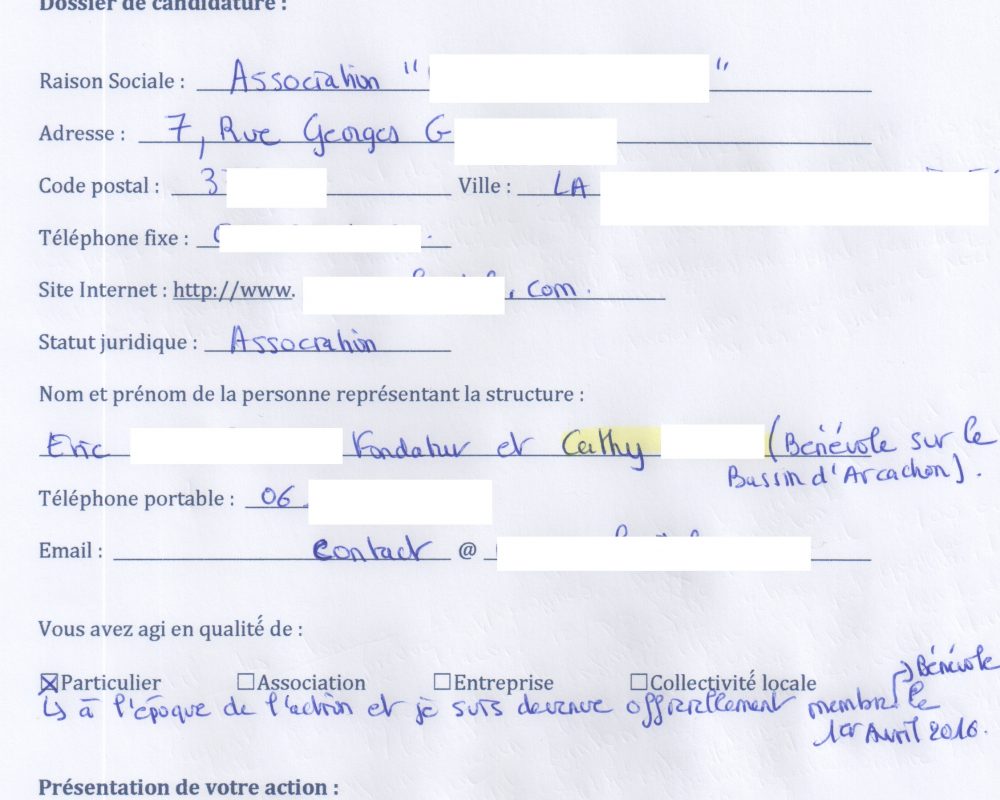 Dossier de candidature :
Raison Sociale : Association " "
Adresse : 7, Rue Georges G
Code postal : 3 Ville : LA
Téléphone fixe :
Site Internet : http://www. .com.
Statut juridique : Association
Nom et prénom de la personne représentant la structure :
Eric Fondateur et Cathy (Bénévole sur le
Bassin d'Arcachon).
Téléphone portable : 06
Email : contact @
Vous avez agi en qualité de :
Bénévole
☒Particulier ☐Association ☐Entreprise ☐Collectivité locale
↳ à l'époque de l'action et je suis devenue officiellement membre le
1er Avril 2016.
Présentation de votre action :